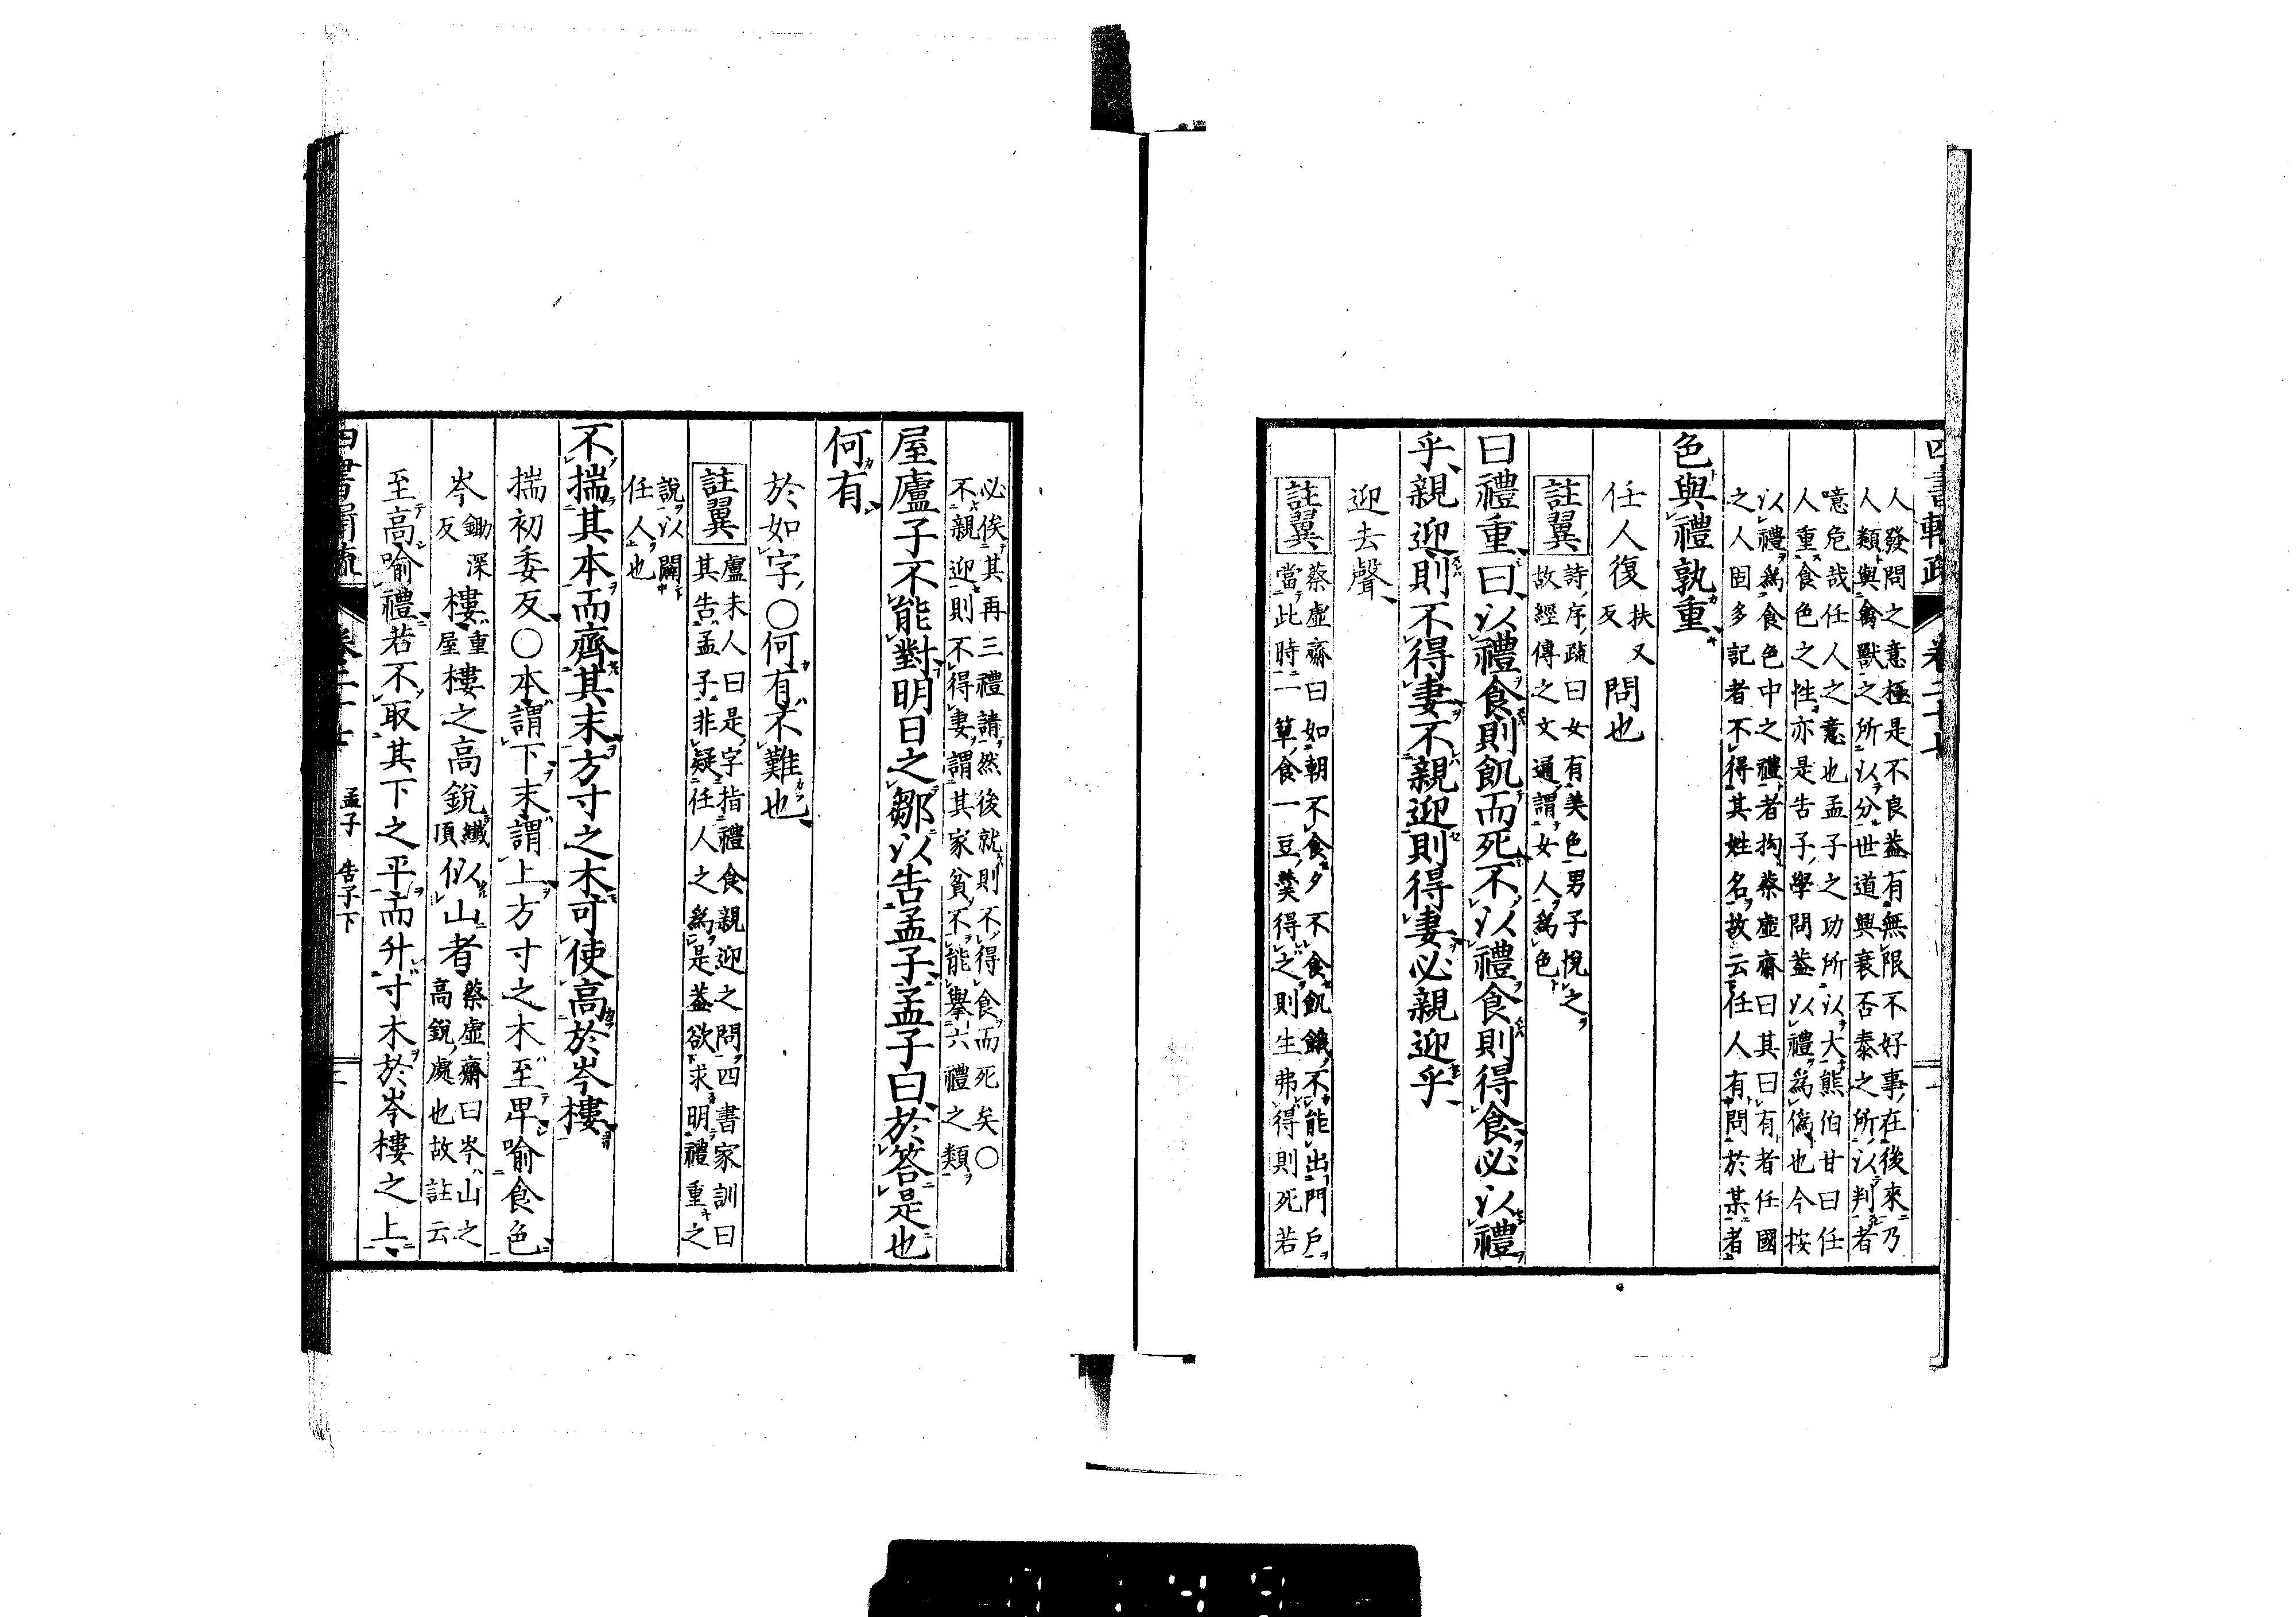 四書輯疏 卷二十七
人發問之意極是不良蓋有無限不好事在後來乃
人類與禽獸之所以分世道興衰否泰之所以判者
噫危哉任人之意也孟子之功所以大熊伯甘曰任
人重食色之性亦是告子學問蓋以禮爲僞也今按
以禮爲食色中之禮者拘蔡虛齋曰其曰有者任國
之人固多記者不得其姓名故云任人有問於某者
色與禮孰重
任人復扶又反問也
註翼 詩序疏曰女有美色男子悅之
故經傳之文通謂女人爲色
曰禮重曰以禮食則飢而死不以禮食則得食必以禮
乎親迎則不得妻不親迎則得妻必親迎乎
迎去聲
註翼 蔡虛齋曰如朝不食夕不食飢餓不能出門戶
當此時一簞食一豆羹得之則生弗得則死若
必俟其再三禮請然後就則不得食而死矣○
不親迎則不得妻謂其家貧不能舉六禮之類
屋廬子不能對明日之鄒以告孟子孟子曰於答是也
何有
於如字○何有不難也
註翼 盧未人曰是字指禮食親迎之問四書家訓曰
其告孟子非疑任人之爲是蓋欲求明禮重之
說以闢
任人也
不揣其本而齊其末方寸之木可使高於岑樓
揣初委反○本謂下末謂上方寸之木至卑喻食色
岑鋤深反樓重屋樓之高銳纎頂似山者蔡虛齋曰岑山之高銳處也故註云
至高喻禮若不取其下之平而升寸木於岑樓之上
四書輯疏 卷二十七 孟子 告子下